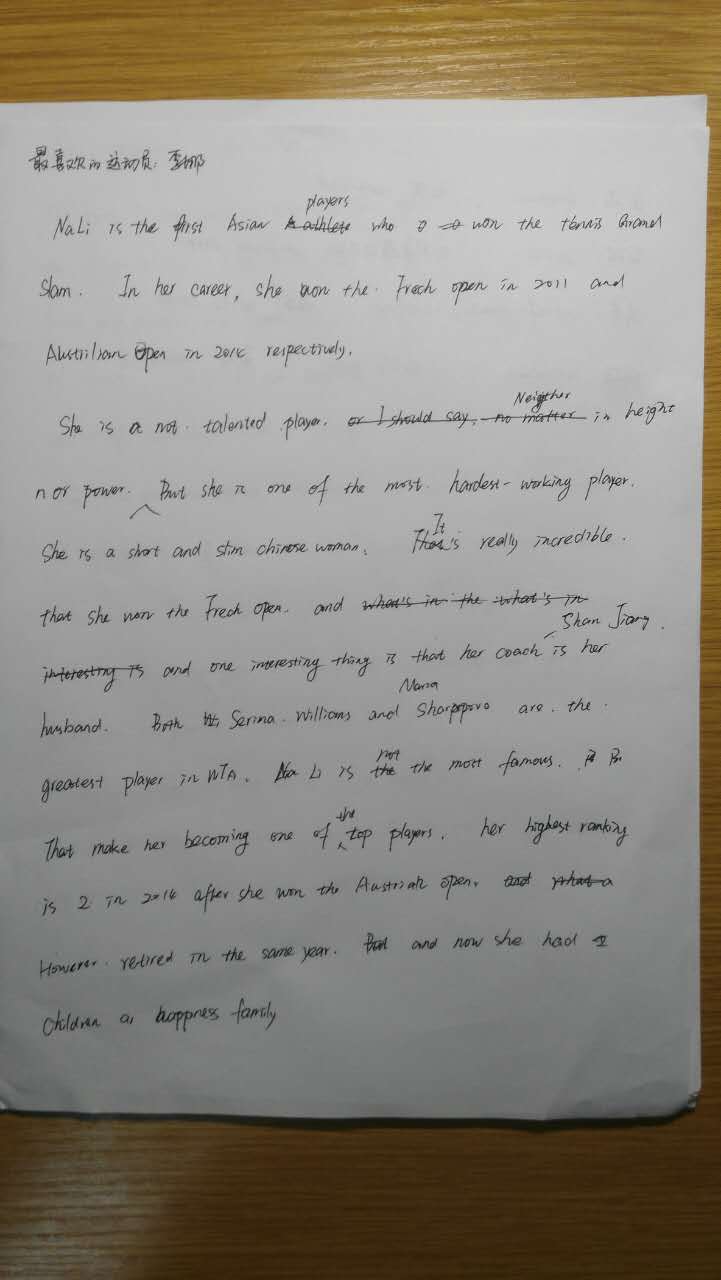 最喜欢的运动员：李娜
players
NaLi is the first Asian athlete who won the tennis Grand
Slam. In her career, she won the Frech open in 2011 and
Austrilian Open in 2014 respectively.
Neigther
She is a not talented player. or I should say, no matter in height
nor power. But she is one of the most hardest-working player.
It
She is a short and slim chinese woman. That's really incredible.
that she won the Frech Open. and what's in the what's in
Shan Jiang.
interesting is and one interesting thing is that her coach is her
Maria
husband. Both Wi Serina Williams and Sharppovo are the
not
greatest player in WTA. Na Li is the the most famous.
the
That make her becoming one of top players. her highest ranking
is 2 in 2014 after she won the Austriah open. and what a
However retired in the same year. But and now she had 2
Children a happness family